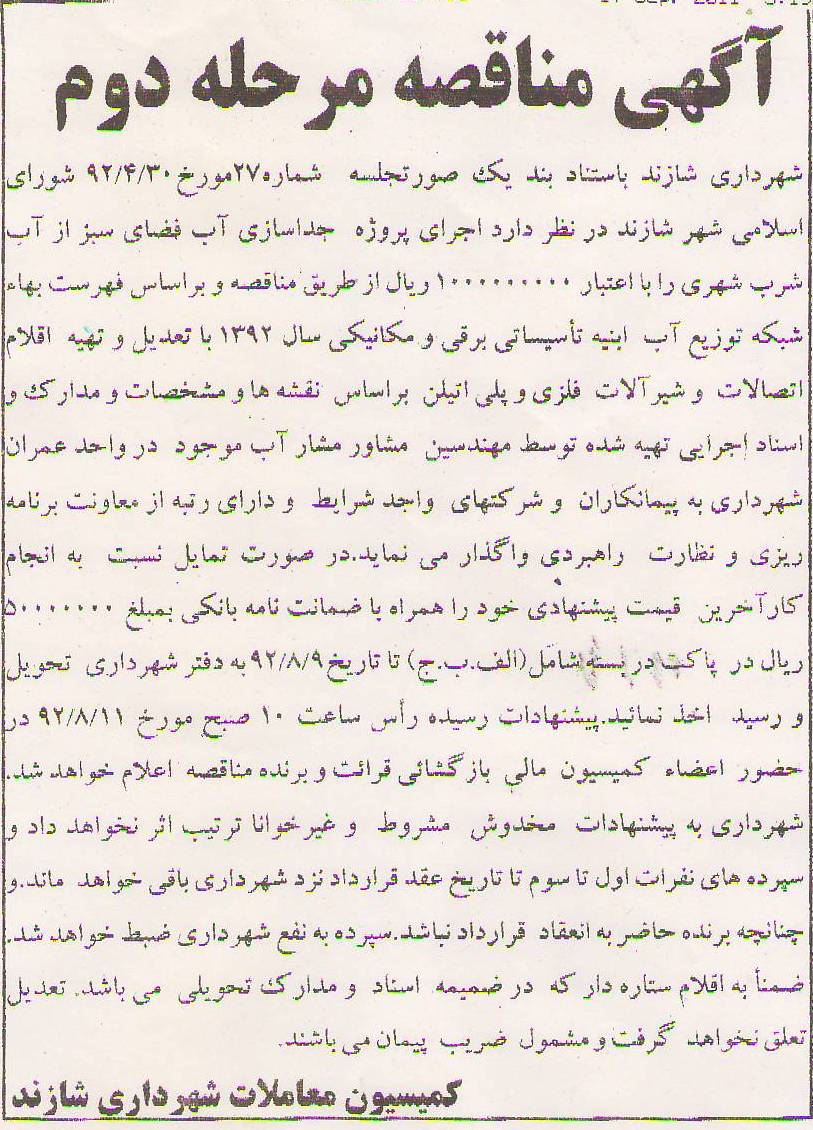 آگهی مناقصه مرحله دوم
شهرداری شازند باستناد بند یک صورتجلسه شماره۲۷مورخ ۹۲/۴/۳۰ شورای
اسلامی شهر شازند در نظر دارد اجرای پروژه جداسازی آب فضای سبز از آب
شرب شهری را با اعتبار ۱۰۰۰۰۰۰۰۰۰۰ ریال از طریق مناقصه و براساس فهرست بهاء
شبکه توزیع آب ابنیه تأسیساتی برقی و مکانیکی سال ۱۳۹۲ با تعدیل و تهیه اقلام
اتصالات و شیرآلات فلزی و پلی اتیلن براساس نقشه ها و مشخصات و مدارک و
اسناد اجرایی تهیه شده توسط مهندسین مشاور مشار آب موجود در واحد عمران
شهرداری به پیمانکاران و شرکتهای واجد شرایط و دارای رتبه از معاونت برنامه
ریزی و نظارت راهبردی واگذار می نماید.در صورت تمایل نسبت به انجام
کارآخرین قیمت پیشنهادی خود را همراه با ضمانت نامه بانکی بمبلغ ۵۰۰۰۰۰۰۰۰
ریال در پاکت در بسته شامل(الف.ب.ج) تا تاریخ ۹۲/۸/۹ به دفتر شهرداری تحویل
و رسید اخذ نمائید.پیشنهادات رسیده رأس ساعت ۱۰ صبح مورخ ۹۲/۸/۱۱ در
حضور اعضاء کمیسیون مالی بازگشائی قرائت و برنده مناقصه اعلام خواهد شد.
شهرداری به پیشنهادات مخدوش مشروط و غیرخوانا ترتیب اثر نخواهد داد و
سپرده های نفرات اول تا سوم تا تاریخ عقد قرارداد نزد شهرداری باقی خواهد ماند.و
چنانچه برنده حاضر به انعقاد قرارداد نباشد.سپرده به نفع شهرداری ضبط خواهد شد.
ضمناً به اقلام ستاره دار که در ضمیمه اسناد و مدارک تحویلی می باشد. تعدیل
تعلق نخواهد گرفت و مشمول ضریب پیمان می باشند.
کمیسیون معاملات شهرداری شازند